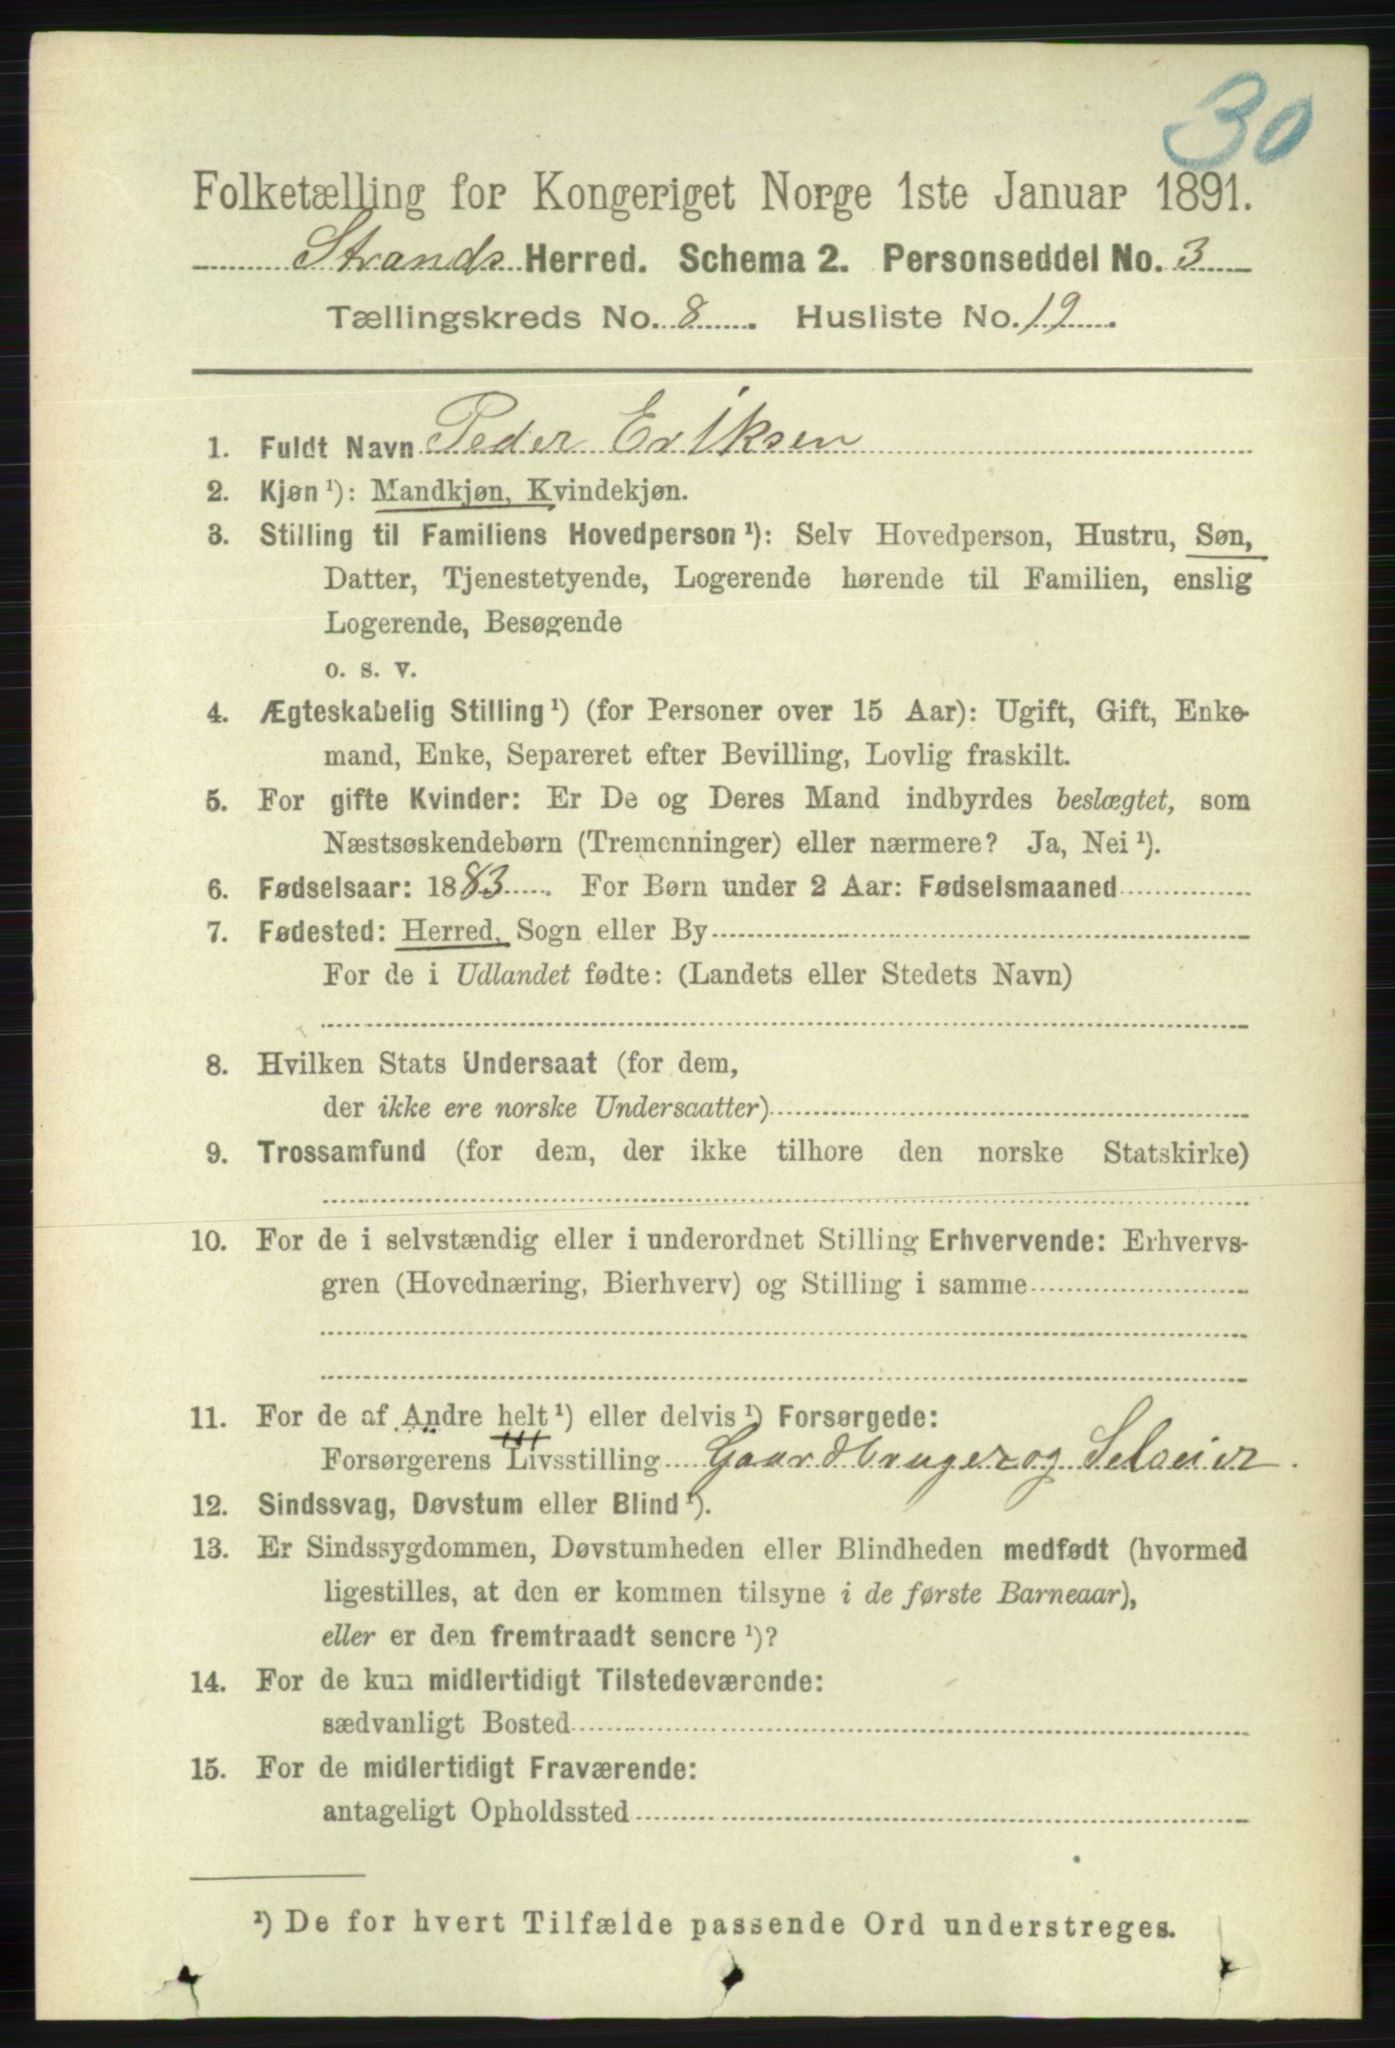 30
Folketælling for Kongeriget Norge 1ste Januar 1891.
Strands Herred. Schema 2. Personseddel No. 3
Tællingskreds No. 8. Husliste No. 19.
1. Fuldt Navn Peder Eriksen
2. Kjøn ¹): Mandkjøn, Kvindekjøn.
3. Stilling til Familiens Hovedperson ¹): Selv Hovedperson, Hustru, Søn,
Datter, Tjenestetyende, Logerende hørende til Familien, enslig
Logerende, Besøgende
o. s. v.
4. Ægteskabelig Stilling ¹) (for Personer over 15 Aar): Ugift, Gift, Enke-
mand, Enke, Separeret efter Bevilling, Lovlig fraskilt.
5. For gifte Kvinder: Er De og Deres Mand indbyrdes beslægtet, som
Næstsøskendebørn (Tremenninger) eller nærmere? Ja, Nei ¹).
6. Fødselsaar: 1883. For Børn under 2 Aar: Fødselsmaaned
7. Fødested: Herred, Sogn eller By
For de i Udlandet fødte: (Landets eller Stedets Navn)
8. Hvilken Stats Undersaat (for dem,
der ikke ere norske Undersaatter)
9. Trossamfund (for dem, der ikke tilhore den norske Statskirke)
10. For de i selvstændig eller i underordnet Stilling Erhvervende: Erhvervs-
gren (Hovednæring, Bierhverv) og Stilling i samme
11. For de af Andre helt ¹) eller delvis ¹) Forsørgede:
Forsørgerens Livsstilling Gaardbruger og Selveier.
12. Sindssvag, Døvstum eller Blind ¹).
13. Er Sindssygdommen, Døvstumheden eller Blindheden medfødt (hvormed
ligestilles, at den er kommen tilsyne i de første Barneaar),
eller er den fremtraadt senere ¹)?
14. For de kun midlertidigt Tilstedeværende:
sædvanligt Bosted
15. For de midlertidigt Fraværende:
antageligt Opholdssted
¹) De for hvert Tilfælde passende Ord understreges.